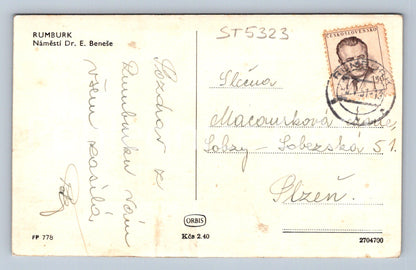 RUMBURK
Náměstí Dr. E. Beneše
ST5323
ČESKOSLOVENSKO
Pozdrav z
Rumburku Vám
všem zasílá
Slečna
Macourková
Lobzy - Lobezská 51.
Plzeň.
ORBIS
Kčs 2.40
FP 778
2704700